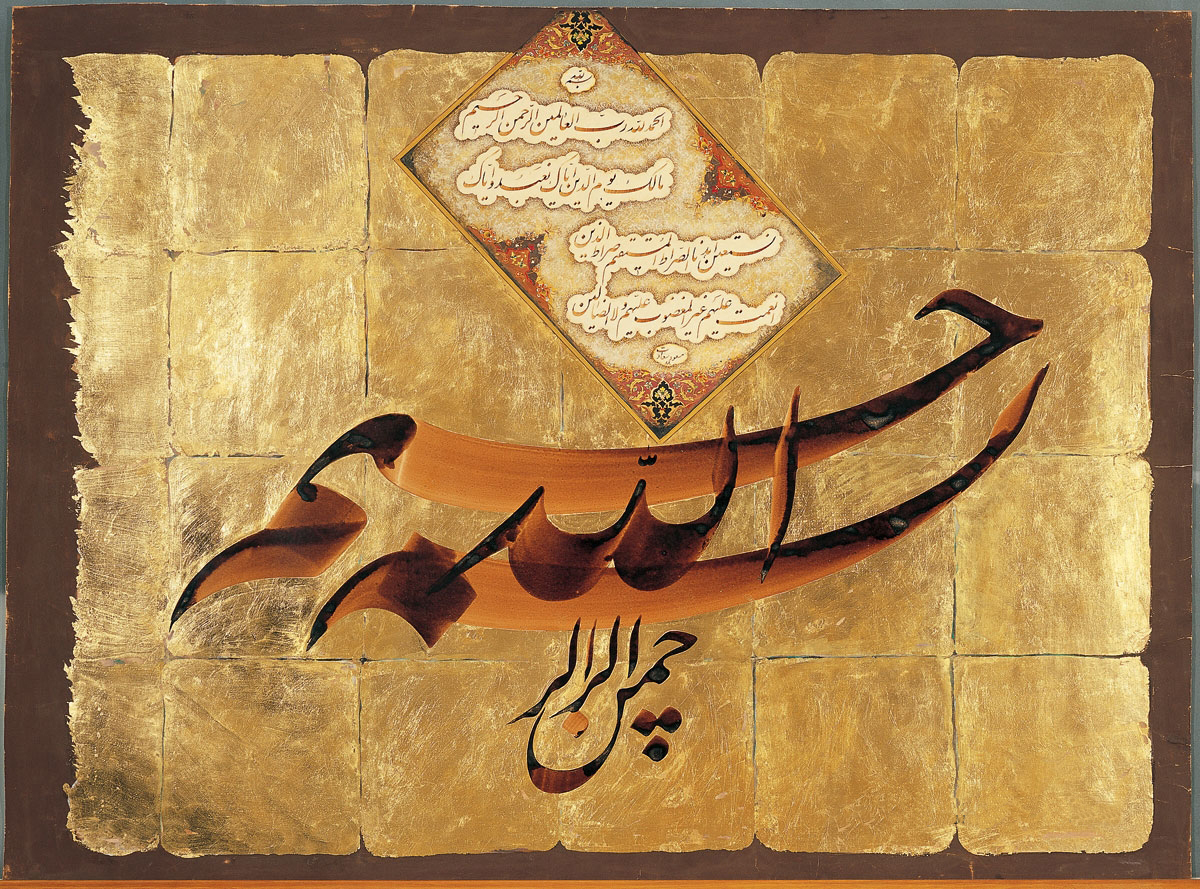 بسم الله
الحمد لله رب العالمين الرحمن الرحيم
مالك يوم الدين اياك نعبد و اياك
نستعين اهدنا الصراط المستقيم صراط الذين
انعمت عليهم غير المغضوب عليهم ولا الضالين
بسم الله الرحمن الرحيم